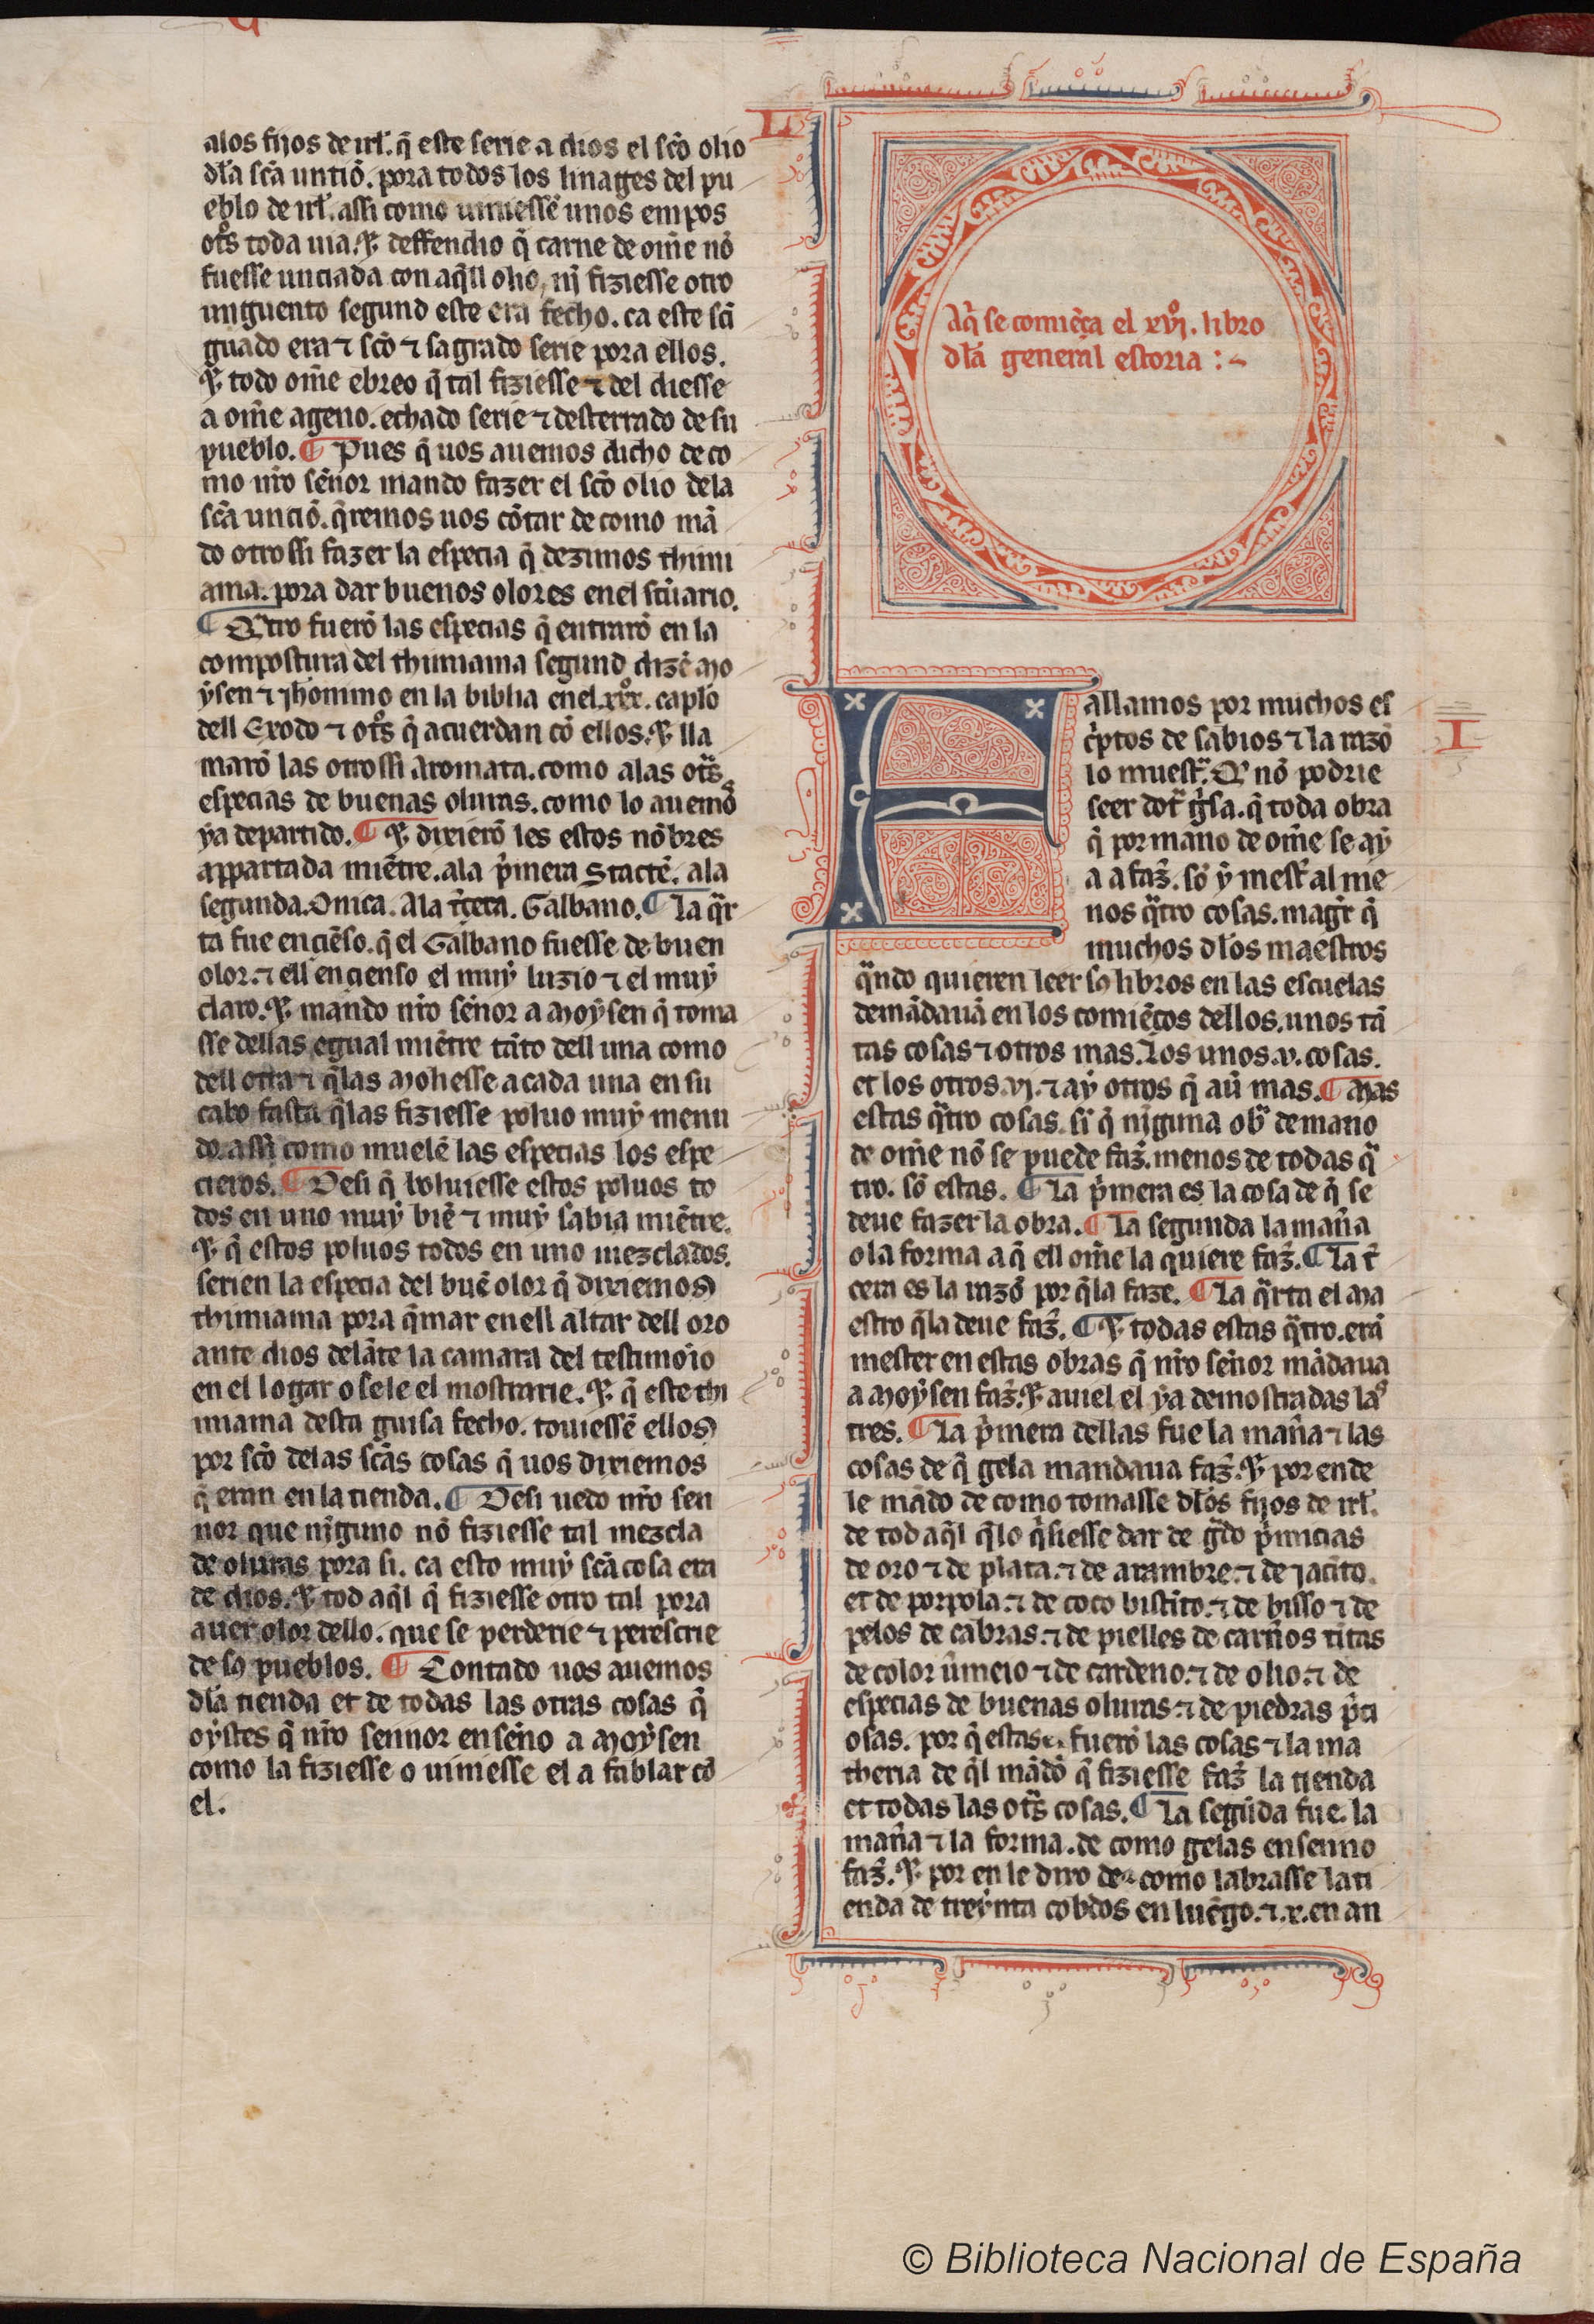 alos fijos de irl̃. q̃ este serie a dios el sc̃o olio
dl̃a sc̃a untiõ. pora todos los linages del pu
eblo de irl̃. assi como uiniessẽ unos empos
otr̃s toda uia. ⁊ deffendio q̃ carne de om̃e nõ
fuesse unciada con aq̃ll olio, nĩ fiziesse otro
unguento segund este era fecho. ca este scĩ
guado era ⁊ sc̃o ⁊ sagrado serie pora ellos.
⁊ todo om̃e ebreo q̃ tal fiziesse ⁊ del diesse
a om̃e ageno. echado serie ⁊ desterrado de su
pueblo. ¶ Pues q̃ uos auemos dicho de co
mo nr̃o sẽnor mando fazer el sc̃o olio dela
sc̃a unciõ. q̃remos uos cõtar de como mã
do otrossi fazer la especia q̃ dezimos thimi
ama. pora dar buenos olores enel sc̃uario.
¶ Q̃tro fuerõ las especias q̃ entrarõ en la
compostura del thimiama segund dizẽ mo
ysen ⁊ jheronimo en la biblia enel .xxx.º caplo
dell Exodo ⁊ otr̃s q̃ acuerdan cõ ellos. ⁊ lla
marõ las otrossi aromata. como alas otr̃s
especias de buenas oluras. como lo auemos
ya departido. ¶ ⁊ dixierõ les estos nõbres
appartada miẽtre. ala p̃mera Stactẽ. ala
segunda. Onica. Ala t̃cera. Galbano. ¶ La q̃r
ta fue enciẽso. q̃ el Galbano fuesse de buen
olor. ⁊ ell encienso el muy luzio ⁊ el muy
claro. ⁊ mando nr̃o sẽnor a moysen q̃ toma
sse dellas egual miẽtre tãto dell una como
dell otra ⁊ q̃las moliesse a cada una en su
cabo fasta q̃las fiziesse poluo muy menu
do. assi como muelẽ las especias los espe
cieros. ¶ Desi q̃ boluiesse estos poluos to
dos en uno muy biẽ ⁊ muy sabia miẽtre.
⁊ q̃ estos poluos todos en uno mezclados.
serien la especia del buẽ olor q̃ dixiemos
thimiama pora q̃mar en ell altar dell oro
ante dios delãte la camara del testimoio
en el logar o sele el mostrarie. ⁊ q̃ este thi
miama desta guisa fecho. touiessẽ ellos
por sc̃o delas sc̃as cosas q̃ uos dixiemos
q̃ eran en la tienda. ¶ Desi uedo nr̃o sen
nor que nĩguno nõ fiziesse tal mezcla
de oluras pora si. ca esto muy sc̃a cosa era
de dios. ⁊ tod aq̃l q̃ fiziesse otro tal pora
auer olor dello. que se perderie ⁊ perescrie
de so pueblos. ¶ Contado uos auemos
dl̃a tienda et de todas las otras cosas q̃
oystes q̃ nr̃o sennor ensẽno a moysen
como la fiziesse o uiniesse el a fablar cõ
el.
LI
Aq̃ se comiẽça el xvj.º libro
dl̃a general estoria :~
I
Fallamos por muchos es
c̃ptos de sabios ⁊ la razõ
lo muestr̃. Q̃ nõ podrie
seer dotr̃ g̃sa. q̃ toda obra
q̃ por mano de om̃e se ay
a a faz̃. sõ y mest̃ al me
nos q̃tro cosas. mag̃r q̃
muchos dl̃os maestros
q̃ndo quieren leer so libros en las escuelas
demãdauã en los comiẽços dellos. unos tã
tas cosas ⁊ otros mas. Los unos .v. cosas.
et los otros .vj. ⁊ ay otros q̃ aũ mas. ¶ Mas
estas q̃tro cosas. si q̃ nĩguna obr̃ de mano
de om̃e nõ se puede faz̃. menos de todas q̃
tro. sõ estas. ¶ La p̃mera es la cosa de q̃ se
deue fazer la obra. ¶ La segunda la mañ̃a
o la forma a q̃ ell om̃e la quiere faz̃. ¶ La t̃
cera es la razõ por q̃la faze. ¶ La q̃rta el ma
estro q̃la deue faz̃. ¶ ⁊ todas estas q̃tro. erã
mester en estas obras q̃ nr̃o sẽnor mãdaua
a moysen faz̃. ⁊ auiel el ya demostradas las
tres. ¶ La p̃mera dellas fue la mañ̃a ⁊ las
cosas de q̃ gela mandaua faz̃. ⁊ por ende
le mãdo de como tomasse dl̃os fijos de irl̃.
de tod aq̃l q̃lo q̃siesse dar de g̃do p̃micias
de oro ⁊ de plata. ⁊ de arambre. ⁊ de jacĩto.
et de porpola. ⁊ de coco bistĩto. ⁊ de bisso ⁊ de
pelos de cabras. ⁊ de pielles de carños tĩtas
de color ũmeio ⁊ de cardeno. ⁊ de olio. ⁊ de
especias de buenas oluras. ⁊ de piedras p̃ci
osas. por q̃ estas fuerõ las cosas ⁊ la ma
theria de q̃l mãdo q̃ fiziesse faz̃ la tienda
et todas las otr̃s cosas. ¶ La segũda fue. la
mañ̃a ⁊ la forma. de como gelas ensenno
faz̃. ⁊ por en le dixo de como labrasse la ti
enda de treynta cobdos en luẽgo. ⁊ .x. en an
© Biblioteca Nacional de España